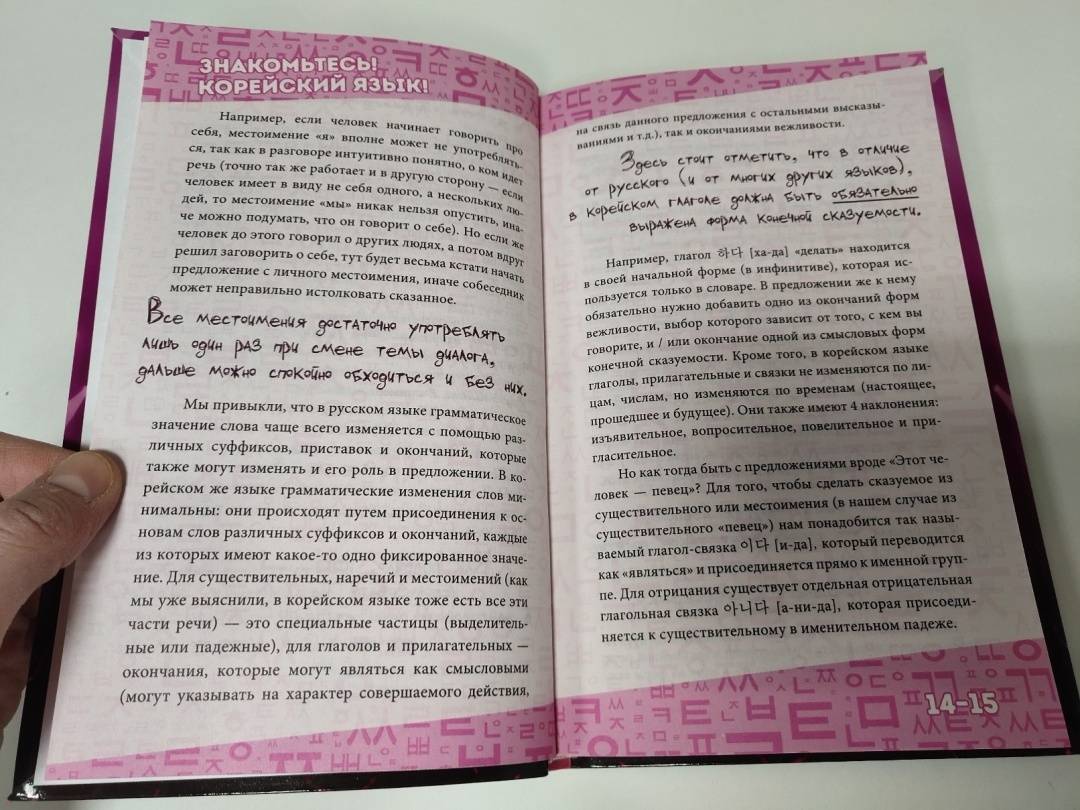 ЗНАКОМЬТЕСЬ!
КОРЕЙСКИЙ ЯЗЫК!
Например, если человек начинает говорить про
себя, местоимение «я» вполне может не употреблять-
ся, так как в разговоре интуитивно понятно, о ком идет
речь (точно так же работает и в другую сторону — если
человек имеет в виду не себя одного, а нескольких лю-
дей, то местоимение «мы» никак нельзя опустить, ина-
че можно подумать, что он говорит о себе). Но если же
человек до этого говорил о других людях, а потом вдруг
решил заговорить о себе, тут будет весьма кстати начать
предложение с личного местоимения, иначе собеседник
может неправильно истолковать сказанное.
Все местоимения достаточно употреблять
лишь один раз при смене темы диалога,
дальше можно спокойно обходиться и без них.
Мы привыкли, что в русском языке грамматическое
значение слова чаще всего изменяется с помощью раз-
личных суффиксов, приставок и окончаний, которые
также могут изменять и его роль в предложении. В ко-
рейском же языке грамматические изменения слов ми-
нимальны: они происходят путем присоединения к ос-
новам слов различных суффиксов и окончаний, каждые
из которых имеют какое-то одно фиксированное значе-
ние. Для существительных, наречий и местоимений (как
мы уже выяснили, в корейском языке тоже есть все эти
части речи) — это специальные частицы (выделитель-
ные или падежные), для глаголов и прилагательных —
окончания, которые могут являться как смысловыми
(могут указывать на характер совершаемого действия,
на связь данного предложения с остальными высказы-
ваниями и т.д.), так и окончаниями вежливости.
Здесь стоит отметить, что в отличие
от русского (и от многих других языков),
в корейском глаголе должна быть обязательно
выражена форма конечной сказуемости.
Например, глагол 하다 [ха-да] «делать» находится
в своей начальной форме (в инфинитиве), которая ис-
пользуется только в словаре. В предложении же к нему
обязательно нужно добавить одно из окончаний форм
вежливости, выбор которого зависит от того, с кем вы
говорите, и / или окончание одной из смысловых форм
конечной сказуемости. Кроме того, в корейском языке
глаголы, прилагательные и связки не изменяются по ли-
цам, числам, но изменяются по временам (настоящее,
прошедшее и будущее). Они также имеют 4 наклонения:
изъявительное, вопросительное, повелительное и при-
гласительное.
Но как тогда быть с предложениями вроде «Этот че-
ловек — певец»? Для того, чтобы сделать сказуемое из
существительного или местоимения (в нашем случае из
существительного «певец») нам понадобится так назы-
ваемый глагол-связка 이다 [и-да], который переводится
как «являться» и присоединяется прямо к именной груп-
пе. Для отрицания существует отдельная отрицательная
глагольная связка 아니다 [а-ни-да], которая присоеди-
няется к существительному в именительном падеже.
14-15